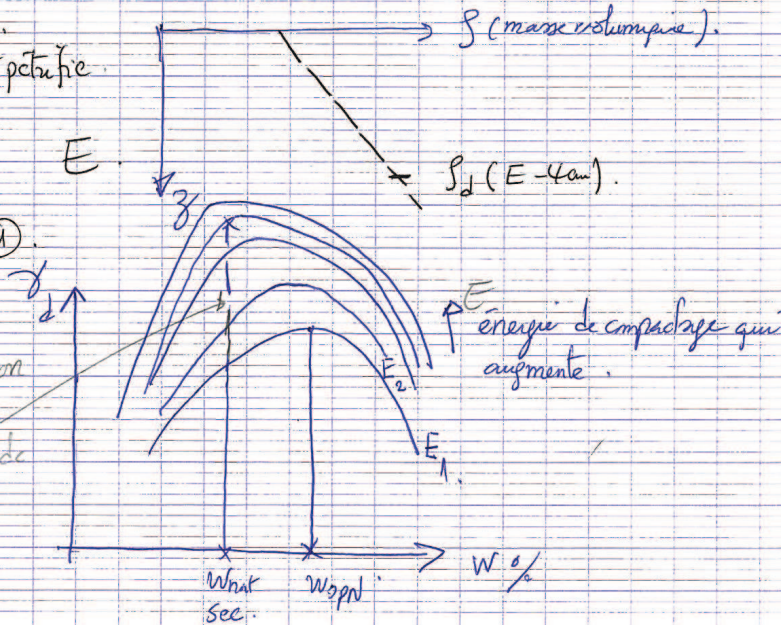 ρ (masse volumique).
E.
ρd (E - 4 cm).
z
1).
γd
E
énergie de compactage qui
augmente.
E2
E1.
W %
Wnat
sec.
WOPN.